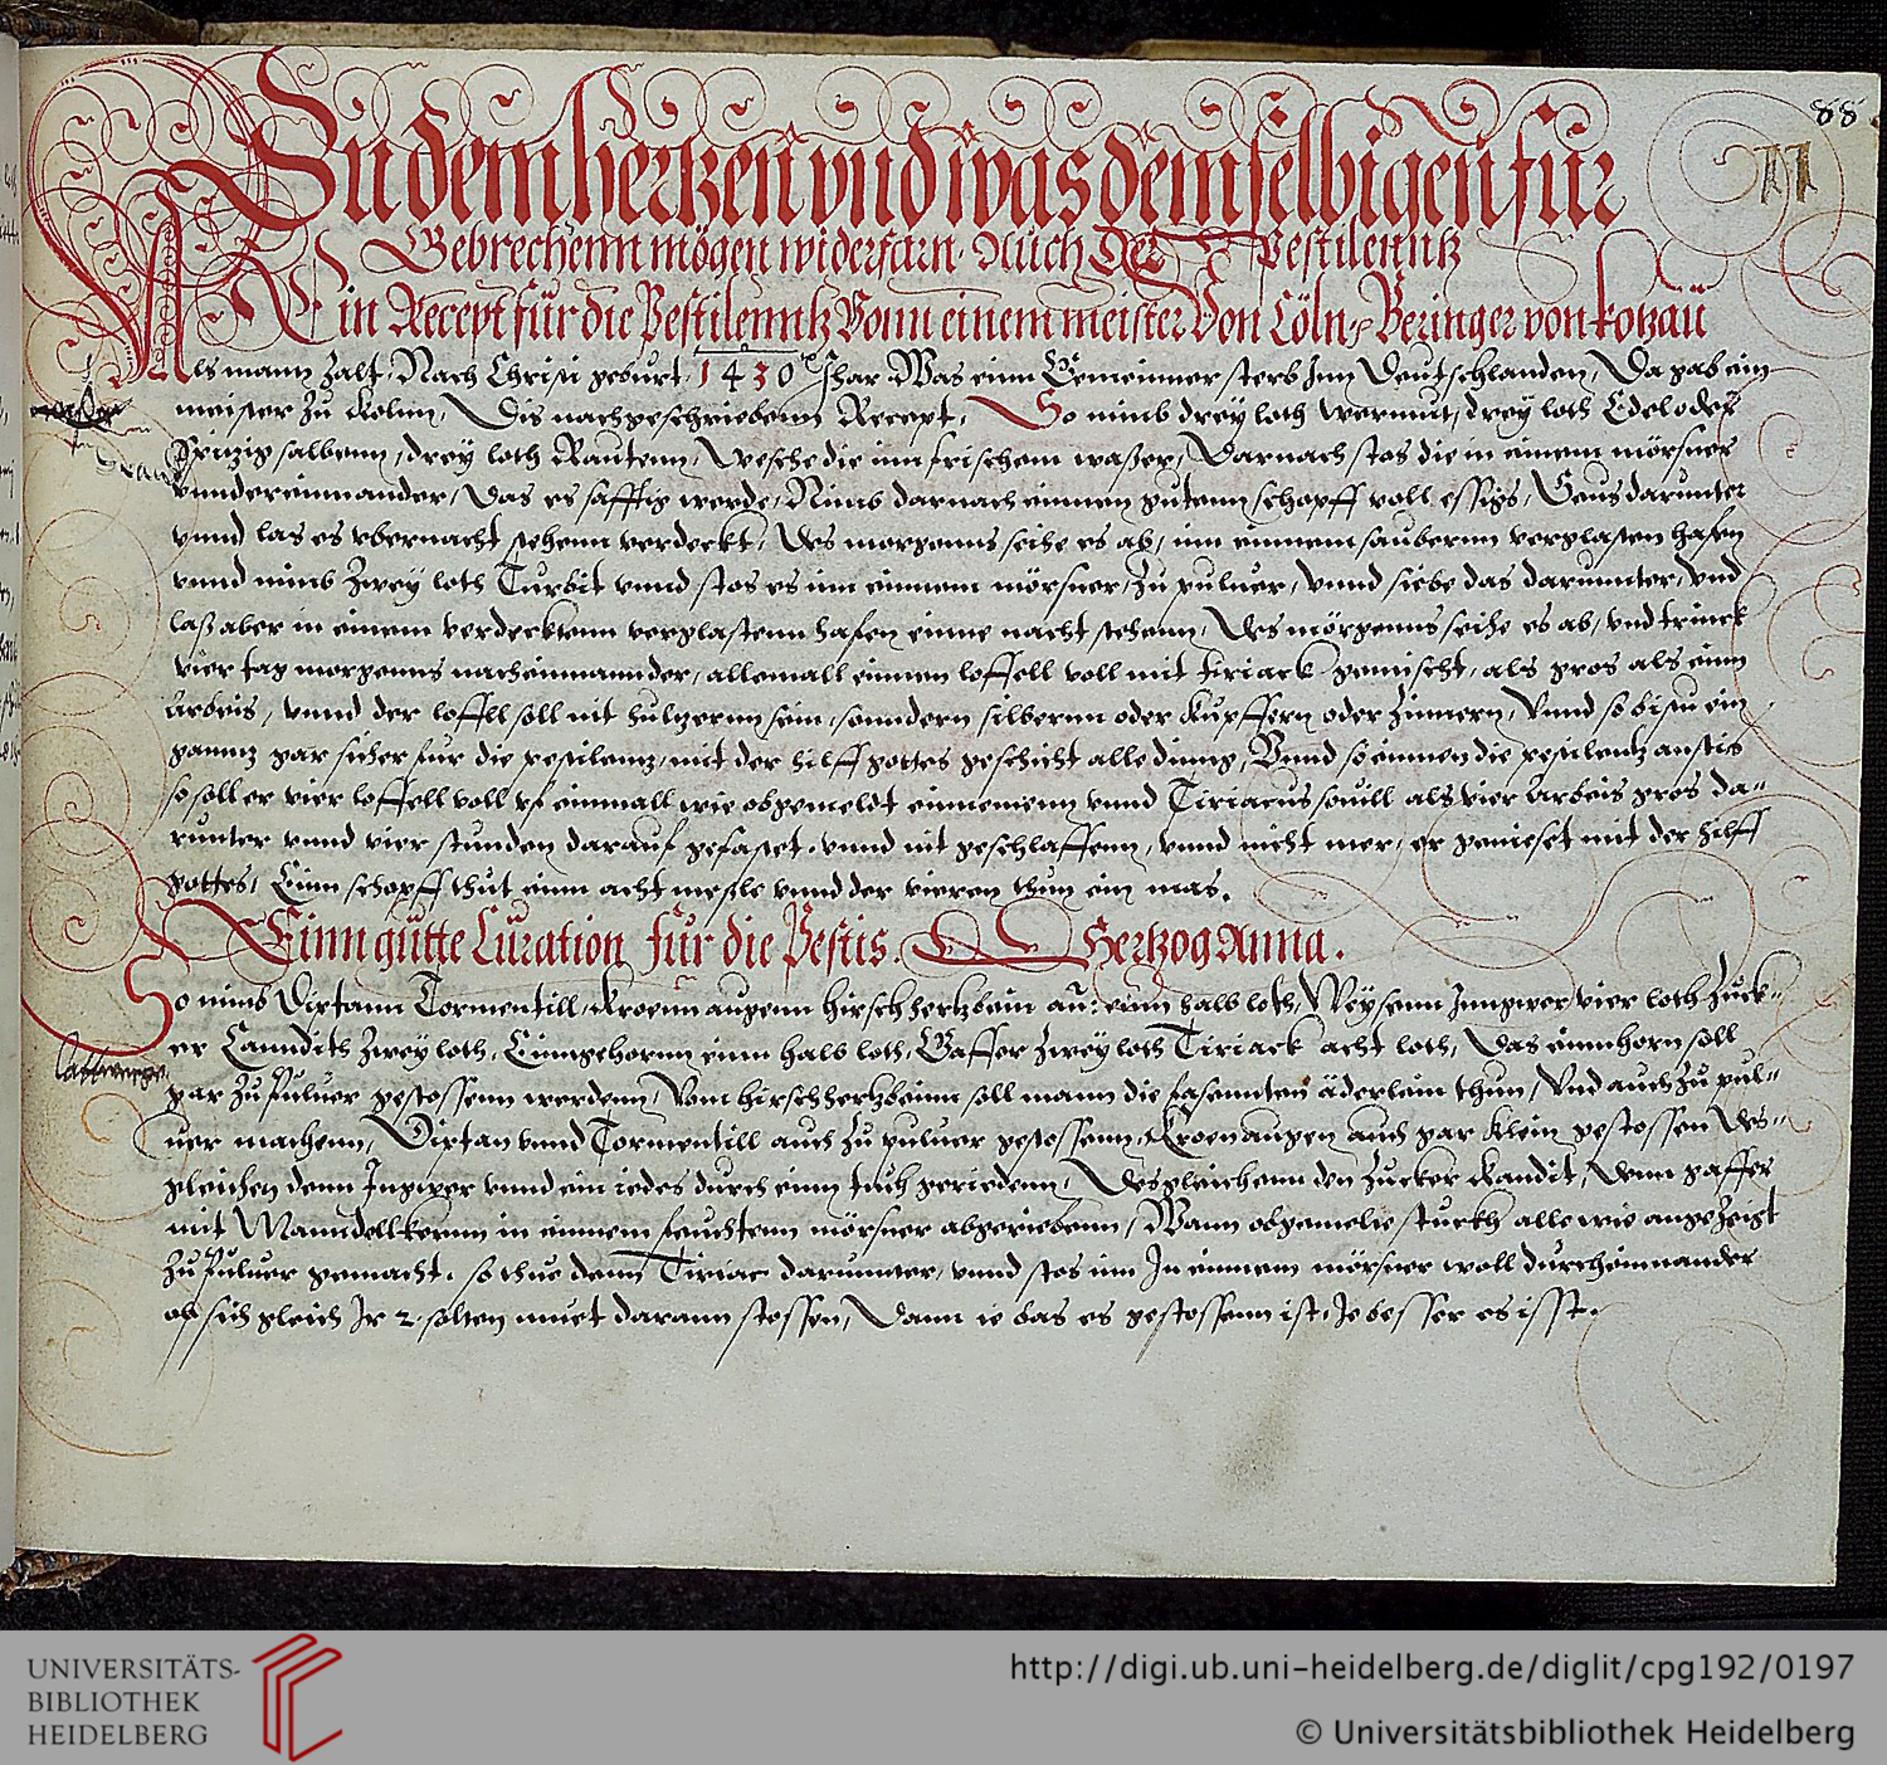 88
11
Zu dem hertzen vnd was demselbigen fur
Gebrechenn mögen widerfarn. Auch Der Pestilenntz
Ein Recept für die Pestilenntz Vonn einem meister Von Cöln Beringer von kotzau
Als mann zalt, Nach Christi geburt 1430 Jhar Was einn Gemeinner sterb Inn Deutschlanden, Da gab ein
meister zu Kolnn, Dis nachgeschriebenn Recept, So nimb drey loth wermut, drey loth Edel oder
spitzig salbenn, drey loth Rautenn, wesche die inn frischem waßer, Darnach stos die in einem mörsner
vnndereinnander, Das es safftig werde, Nimb darnach einnen gutenn schopff voll essigs, Geus darunter
vnnd las es vbernacht stehenn verdeckt, Des morgenns seihe es ab, inn einnem saubernn verglasten hafen
vnnd nimb zwey loth Turbit vnnd stos es inn einnem mörsner, zu puluer, vnnd siebe das darunnter, vnd
laß aber in einem verdecktenn verglastenn hafen einne nacht stehenn, Des mörgenns seihe es ab, vnd trinck
vier tag morgenns nacheinnannder, allemall einnen loffell voll mit tiriack gemischt, als gros als einn
Arbeis, vnnd der loffell soll nit hultzernn sein, sonndern silbernn oder kupffern oder zinnern, Vnnd so bistu ein
ganntz gar sicher fur die pestilentz, mit der hilff gottes geschicht alle dinng, Vnnd so einnen die pestilentz anstis
so soll er vier loffell voll vf einmall wie obgemeldt einnemenn vnnd Tiriacus souill als vier Arbeis gros da-
runter vnnd vier stunden darauf gefastet. vnnd nit geschlaffenn, vnnd nicht mer, er genieset mit der hilff
gottes, Einn schopff thut einn acht mesle vnnd der vieren thun ein mas.
Einn gutte Curation für die Pestis. Hertzog Anna.
So nimb Dixtann Tormentill, Kroenn augenn hirschhertzbein an: einn halb loth, Weysenn Inngwer, vier loth Zuck-
er Canndith zwey loth, Einngehornn einn halb loth, Gaffer zwey loth Tiriack acht loth, Das einnhorn soll
Lattwerge
gar zu Puluer gestossenn werdenn, Vom hirschhertzbeinn soll mann die fasennten äderlein thun, Vnd auch zu pul-
uer machenn, Dixtan vnnd Tormentill auch zu puluer gestossenn, Kroenaugen auch gar klein gestossen Des-
gleichen denn Ingwer vnnd ein iedes durch einn tuch geriedenn, Desgleichenn den Zucker Kandit, Denn gaffer
mit Manndellkernn in einnem feuchtenn mörsner abgeriebenn, Wann obgemelte stuckh alle wie angezeigt
zu Puluer gemacht. so thue denn Tiriac darunnter, vnnd stos inn In einnem mörsner woll durcheinnander
ob sich gleich Ir 2. solten muet darann stossen, Dann ie bas es gestossenn ist, Ie besser es isst.
UNIVERSITÄTS-
BIBLIOTHEK
HEIDELBERG
http://digi.ub.uni-heidelberg.de/diglit/cpg192/0197
© Universitätsbibliothek Heidelberg